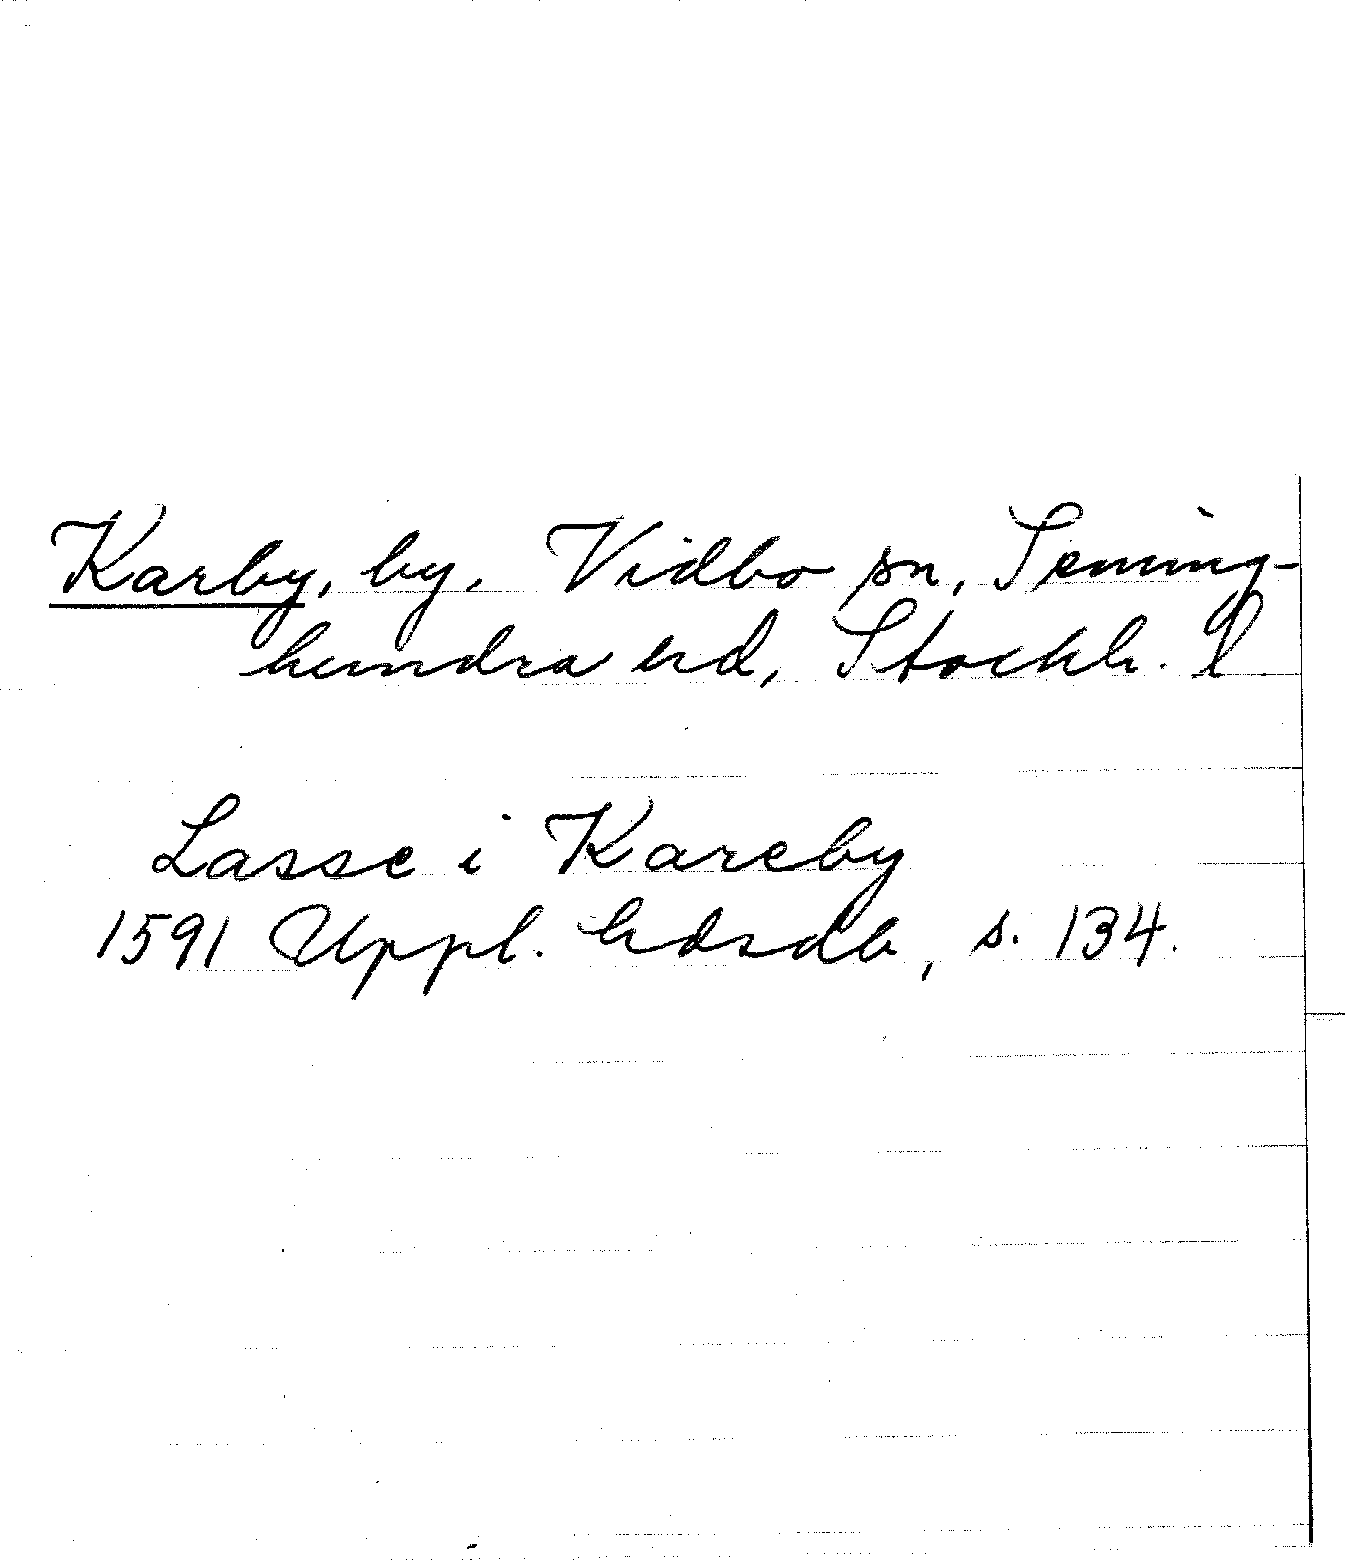 Karby, by. Vidbo sn, Seming-
hundra hd, Stockh. l
Lasse i Kareby
1591 Uppl. hdsdb, s. 134.